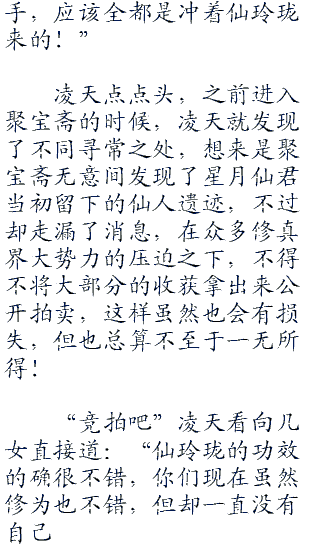 手，应该全都是冲着仙玲珑
来的！”
凌天点点头，之前进入
聚宝斋的时候，凌天就发现
了不同寻常之处，想来是聚
宝斋无意间发现了星月仙君
当初留下的仙人遗迹，不过
却走漏了消息，在众多修真
界大势力的压迫之下，不得
不将大部分的收获拿出来公
开拍卖，这样虽然也会有损
失，但也总算不至于一无所
得！
“竞拍吧”凌天看向儿
女直接道：“仙玲珑的功效
的确很不错，你们现在虽然
修为也不错，但却一直没有
自己